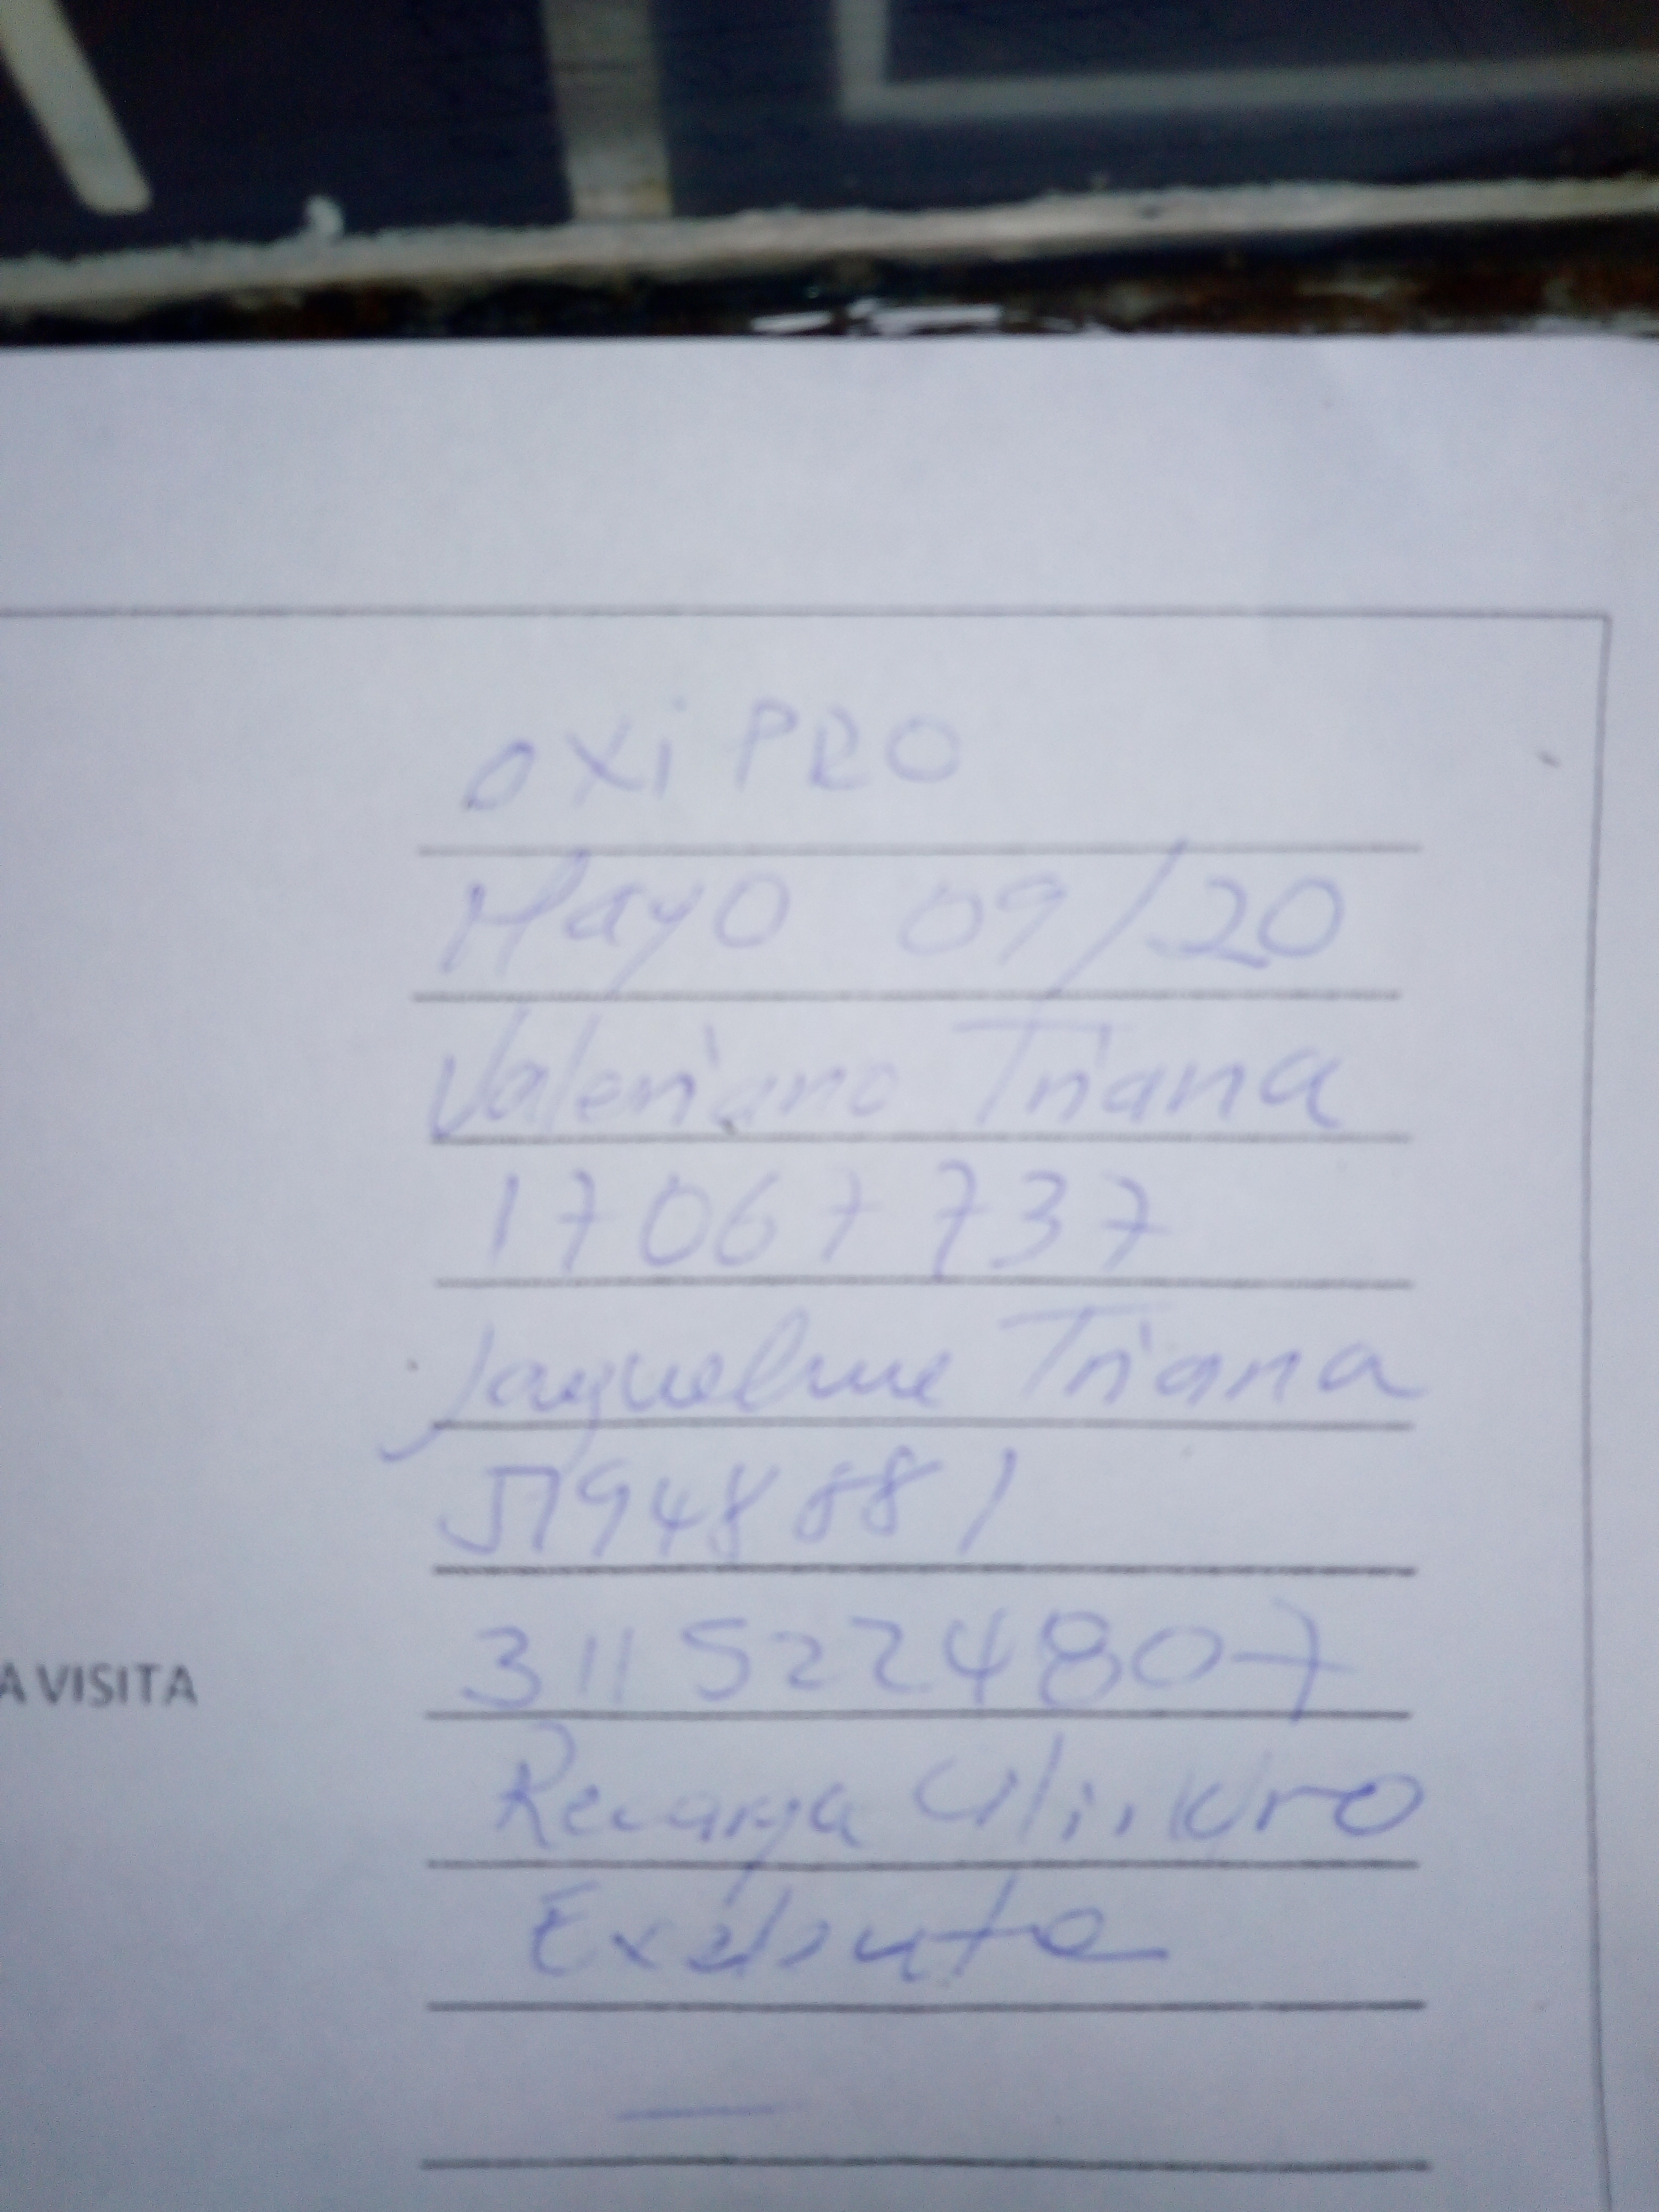 OXi PRO
Mayo 09/20
Valeriano Triana
17067737
Jaqueline Triana
51948881
A VISITA 3115224807
Recarga Cilindro
Exelente
—